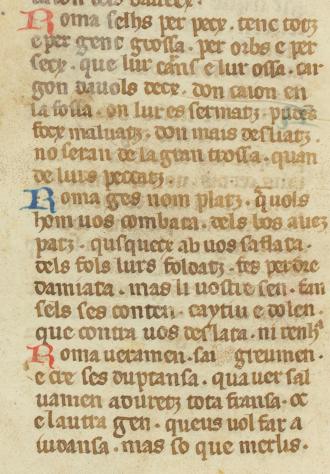 Roma selhs per pecx. tenc totz
e per gent grossa. per orbs e per
secx. que lur carns e lur ossa. car
gon dauols decx. don caion en
la fossa. on lur es sermatz. pudens
focx maluatz. don mais desliatz.
no seran de la gran trossa. quan
de lurs peccatz.
Roma ges nom platz. quols
hom uos combata. dels bos auez
patz. qusquecx ab uos saflata.
dels fols lurs foldatz. fes perdre
damiata. mas li uostre sen. fan
sels ses conten. caytiu e dolen.
que contra uos deslata. ni renha
Roma ueramen. sai greumen.
e cre ses duptansa. qua uer sal
uamen aduretz tota fransa. oc
e lautra gen. queus uol far a
iudansa. mas so que merlis.